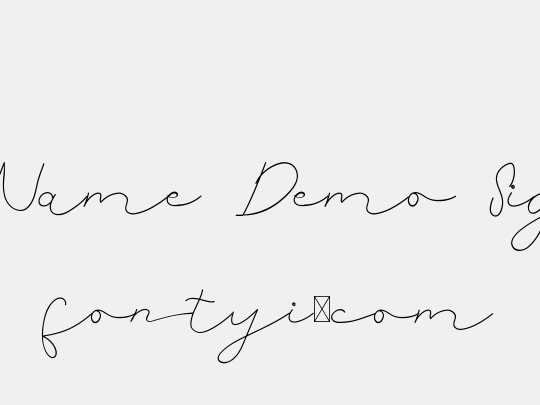 Name Demo Sig
fontyi☒com